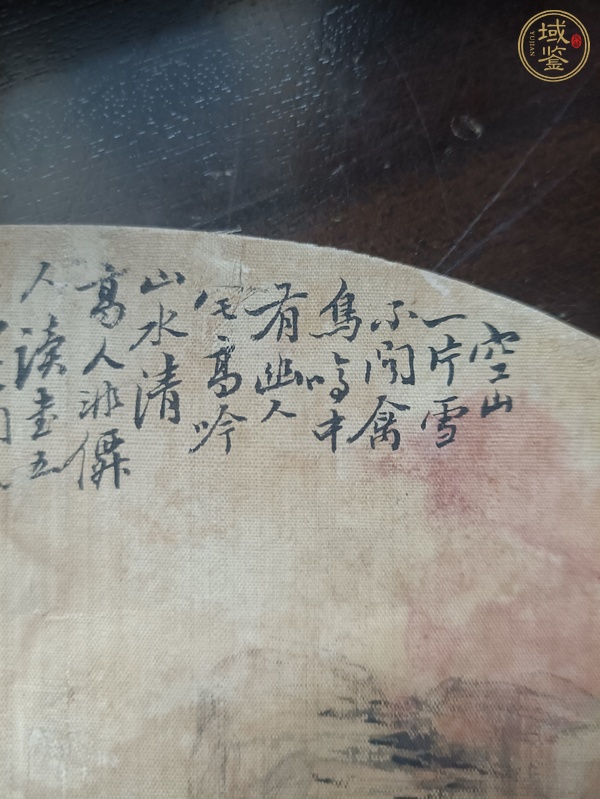 空山
一片雪
不闻禽
鸟鸣中
有幽人
宅高吟
山水清
高人非僻
人读书五
域鉴
YUJIAN